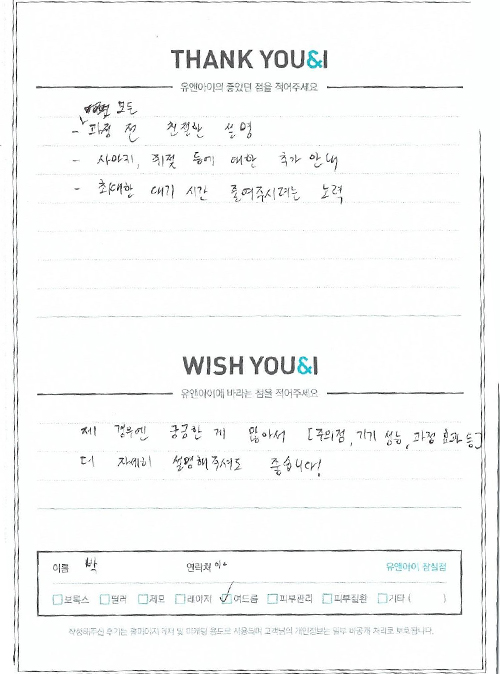 THANK YOU&I
유앤아이의 좋았던 점을 적어주세요
모든
- 과정 전 친절한 설명
- 사마귀, 쥐젖 등에 대한 추가 안내
- 최대한 대기 시간 줄여주시려는 노력
WISH YOU&I
유앤아이에 바라는 점을 적어주세요
제 경우엔 궁금한 게 많아서 [주의점, 기기 성능, 과정 효과 등]
더 자세히 설명해주셔도 좋습니다!
이름 박 연락처 유앤아이 잠실점
보톡스 필러 제모 레이저 여드름 피부관리 피부질환 기타 ( )
작성해주신 후기는 홈페이지 게재 및 마케팅 용도로 사용되며 고객님의 개인정보는 일부 비공개 처리로 보호됩니다.